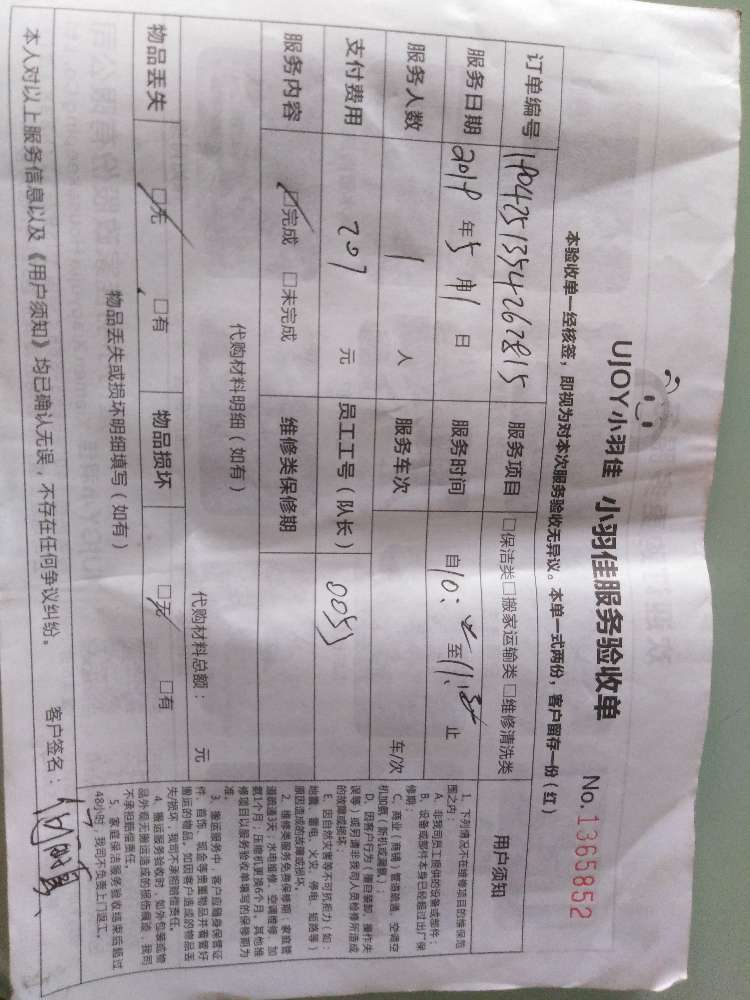 UJOY小羽佳 小羽佳服务验收单 No.1365852
本验收单一经核签，即视为对本次服务验收无异议。本单一式两份，客户留存一份（红）
订单编号 1904251354262815 服务项目 □保洁类□搬家运输类□维修清洗类
服务日期 2019 年 5 月 1 日 服务时间 自 10: 至 11: 止
服务人数 1 人 服务车次 车/次
支付费用 207 元 员工工号（队长） 8053
服务内容 ☑完成 □未完成 维修类保修期
代购材料明细（如有）
代购材料总额： 元
物品丢失 ☑无 □有 物品损坏 ☑无 □有
物品丢失或损坏明细填写（如有）
本人对以上服务信息以及《用户须知》均已确认无误，不存在任何争议纠纷。 客户签名：
用户须知
1、下列情况不在维修项目的维保范
围之内：
A、非我司员工提供的设备或部件；
B、设备或部件本身已经超过出厂保
修期；
C、商业（商铺）管道疏通、空调空
机加氨（新机或漏氨）；
D、因客户行为（擅自装卸、操作失
误等）或另请非我司人员检修所造成
的故障或损坏；
E、因自然灾害等不可抗拒力（如：
地震、雷电、火灾、停电、短路等）
原因造成的故障或损坏。
2、维修类服务免费保修期：家庭管
道疏通3天，水电维修、空调维修、加
氨1个月；压缩机更换6个月，其他维
修项目以服务验收单填写的保修期为
准。
3、搬运服务中，客户应随身保管证
件、首饰、现金等贵重物品并看管好
搬运的物品，如因客户造成的物品丢
失/损坏，我司不承担赔偿责任。
4、搬运服务验收时，如外包装或物
品外观无搬运造成的损伤痕迹，我司
不承担赔偿责任。
5、家庭保洁服务验收结束后超过
48小时，我司不负责上门返工。